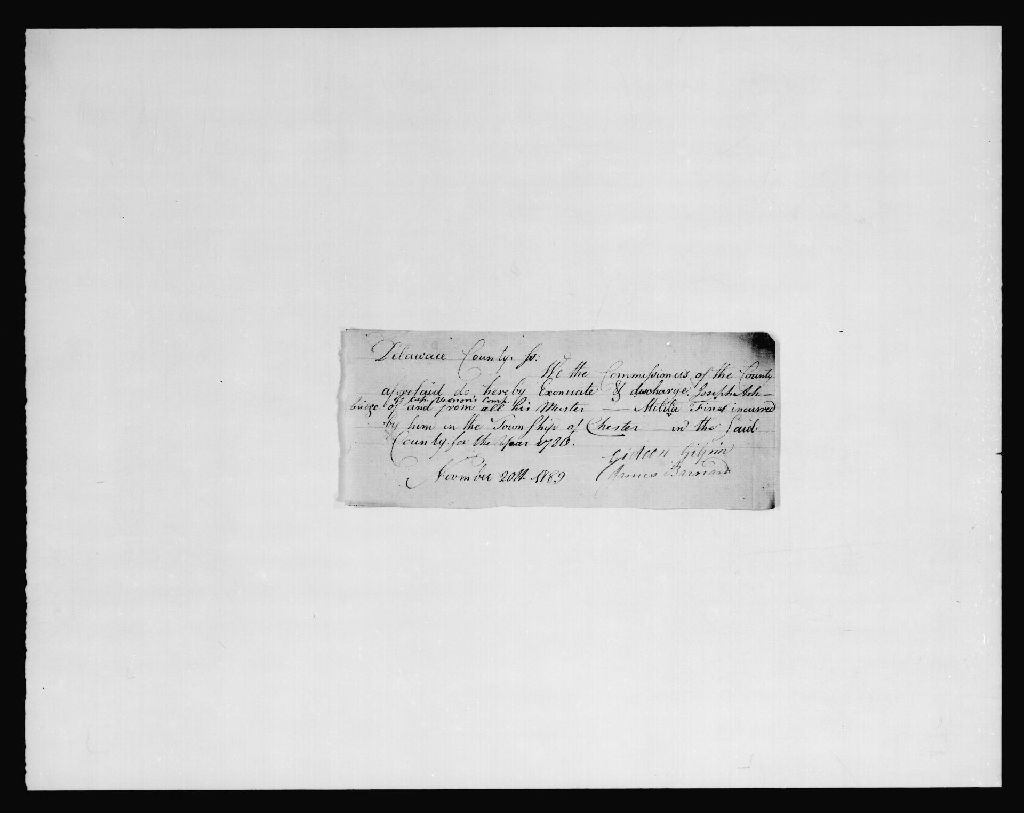 Delaware County ss:
We the Commissioners of the County
aforesaid do hereby Exonerate & discharge Joseph Ash-
bridge of and from all his Muster — Melitia Fines incurred
by him in the Township of Chester in the Said
County for the Year 1786.
Gideon Gilpin
November 20th 1789
James Barnard